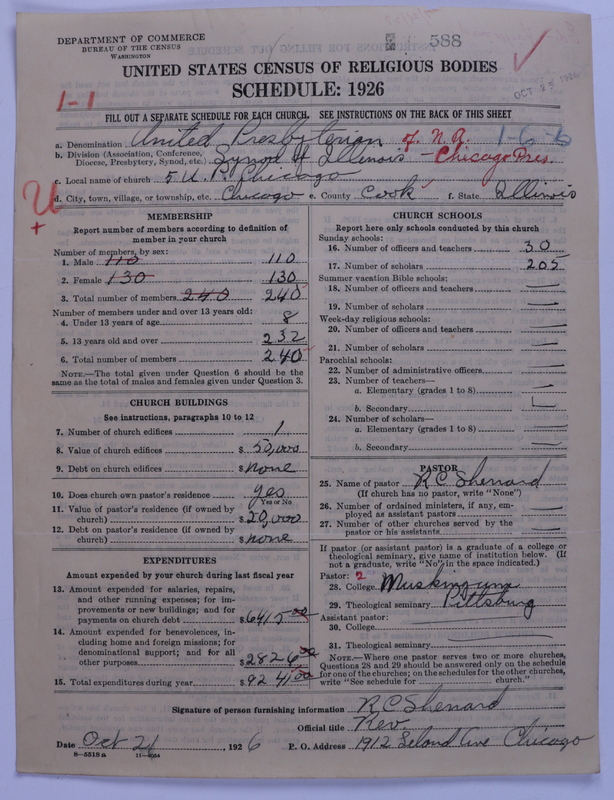 DEPARTMENT OF COMMERCE
BUREAU OF THE CENSUS
WASHINGTON
588
UNITED STATES CENSUS OF RELIGIOUS BODIES
SCHEDULE: 1926
OCT 27 1926
1-1
FILL OUT A SEPARATE SCHEDULE FOR EACH CHURCH. SEE INSTRUCTIONS ON THE BACK OF THIS SHEET
a. Denomination United Presbyterian of N.A. 1-6-6
b. Division (Association, Conference, Diocese, Presbytery, Synod, etc.) Synod of Illinois - Chicago Pres.
c. Local name of church 5 U. P. Chicago
d. City, town, village, or township, etc. Chicago e. County Cook f. State Illinois
U
+
MEMBERSHIP
Report number of members according to definition of member in your church
Number of members, by sex:
1. Male 110 110
2. Female 130 130
3. Total number of members 240 240
Number of members under and over 13 years old:
4. Under 13 years of age 8
5. 13 years old and over 232
6. Total number of members 240
NOTE.—The total given under Question 6 should be the same as the total of males and females given under Question 3.
CHURCH BUILDINGS
See instructions, paragraphs 10 to 12
7. Number of church edifices 1
8. Value of church edifices $50,000
9. Debt on church edifices $none
10. Does church own pastor's residence yes
Yes or No
11. Value of pastor's residence (if owned by church) $20,000
12. Debt on pastor's residence (if owned by church) $none
EXPENDITURES
Amount expended by your church during last fiscal year
13. Amount expended for salaries, repairs, and other running expenses; for improvements or new buildings; and for payments on church debt $6415.00
14. Amount expended for benevolences, including home and foreign missions; for denominational support; and for all other purposes $2826.00
15. Total expenditures during year $9241.00
CHURCH SCHOOLS
Report here only schools conducted by this church
Sunday schools:
16. Number of officers and teachers 30
17. Number of scholars 205
Summer vacation Bible schools:
18. Number of officers and teachers
19. Number of scholars
Week-day religious schools:
20. Number of officers and teachers
21. Number of scholars
Parochial schools:
22. Number of administrative officers
23. Number of teachers—
a. Elementary (grades 1 to 8)
b. Secondary
24. Number of scholars—
a. Elementary (grades 1 to 8)
b. Secondary
PASTOR
25. Name of pastor R C Sherrard
(If church has no pastor, write "None")
26. Number of ordained ministers, if any, employed as assistant pastors
27. Number of other churches served by the pastor or his assistants
If pastor (or assistant pastor) is a graduate of a college or theological seminary, give name of institution below. (If not a graduate, write "No" in the space indicated.)
Pastor: 2
28. College Muskingum
29. Theological seminary Pittsburg
Assistant pastor:
30. College
31. Theological seminary
NOTE.—Where one pastor serves two or more churches, Questions 28 and 29 should be answered only on the schedule for one of the churches; on the schedules for the other churches, write "See schedule for church."
Signature of person furnishing information R C Sherrard
Official title Rev.
Date Oct 21, 1926 P. O. Address 1912 Leland Ave Chicago
8—5518 a